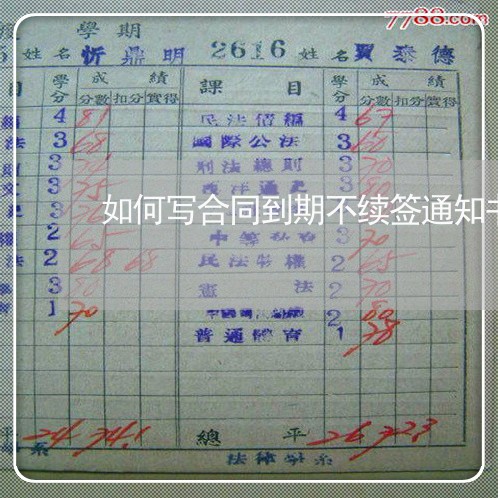 7788.com
學期
5 姓名 忻鼎明 2616 姓名 賈泰德
目 學分 成績 課目 學分 成績
分數 扣分 實得 分數 扣分 實得
4 81 民法債編 4 67
法 3 68 國際公法 3 60
3 刑法總則 3 70
文 3 75 西洋通史 3 80
如何写合同到期不续签通知书
2 65 3 70
法 2 68 68 民法物權 2 65
3 80 憲法 2 70
育 1 70 2 80
普通體育 1 78
平 24 74.1 總平 26 72.3
系 法律學系